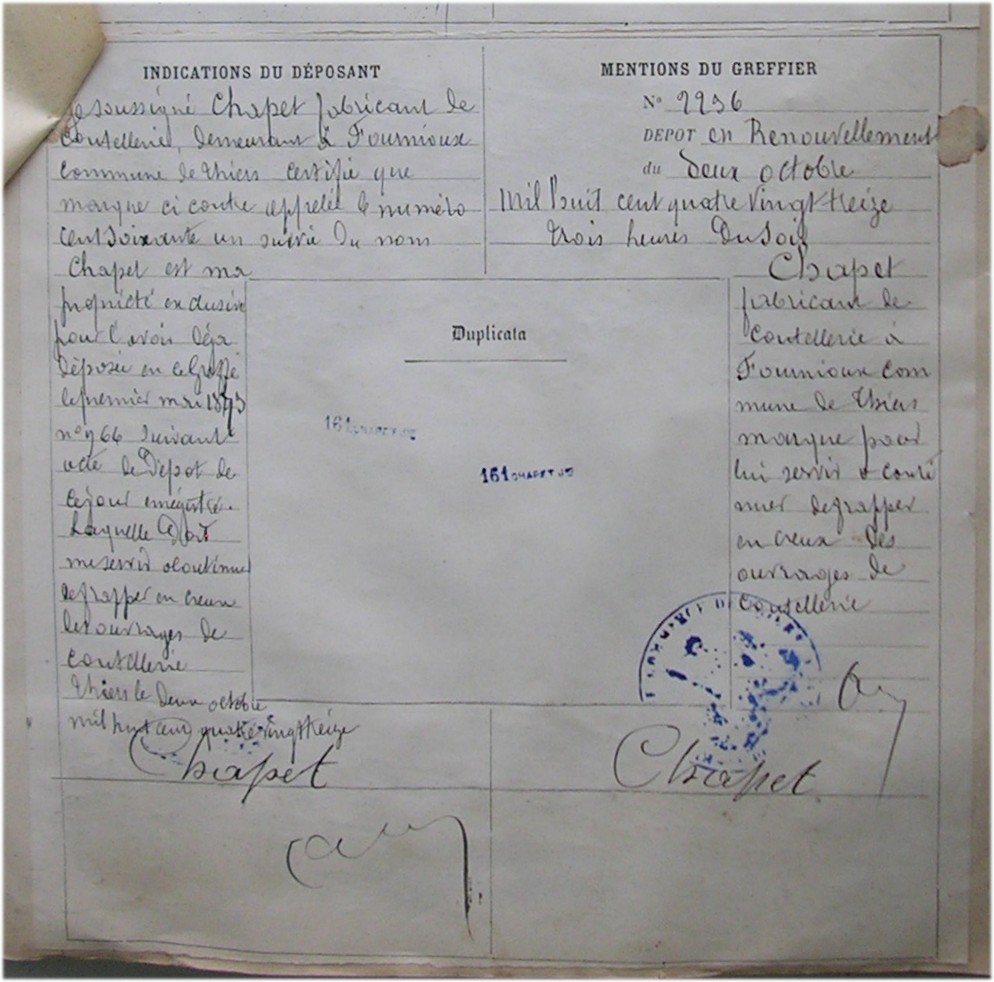 INDICATIONS DU DÉPOSANT
Je soussigné Chapet fabricant de
Coutellerie, demeurant à Fournioux
commune de thiers certifie que
marque ci contre appelée le numéro
cent soixante un suivie du nom
Chapet est ma
propriété exclusive
pour l'avoir déja
déposée en ce Greffe
le premier mai 1873
n° 966 suivant
acte de Dépot de
ce jour enregistré.
Laquelle doit
me servir a continuer
de frapper en creux
les ouvrages de
coutellerie
thiers le deux octobre
mil huit cent quatre vingt treize
Chapet
MENTIONS DU GREFFIER
N° 2236
DEPOT en Renouvellement
du deux octobre
Mil huit cent quatre vingt treize
trois heures du soir
Chapet
fabricant de
Coutellerie à
Fournioux com
mune de thiers
marque pour
lui servir a conti
nuer de frapper
en creux des
ouvrages de
Coutellerie
Duplicata
161 CHAPET
161 CHAPET
COMMERCE DE
Chapet